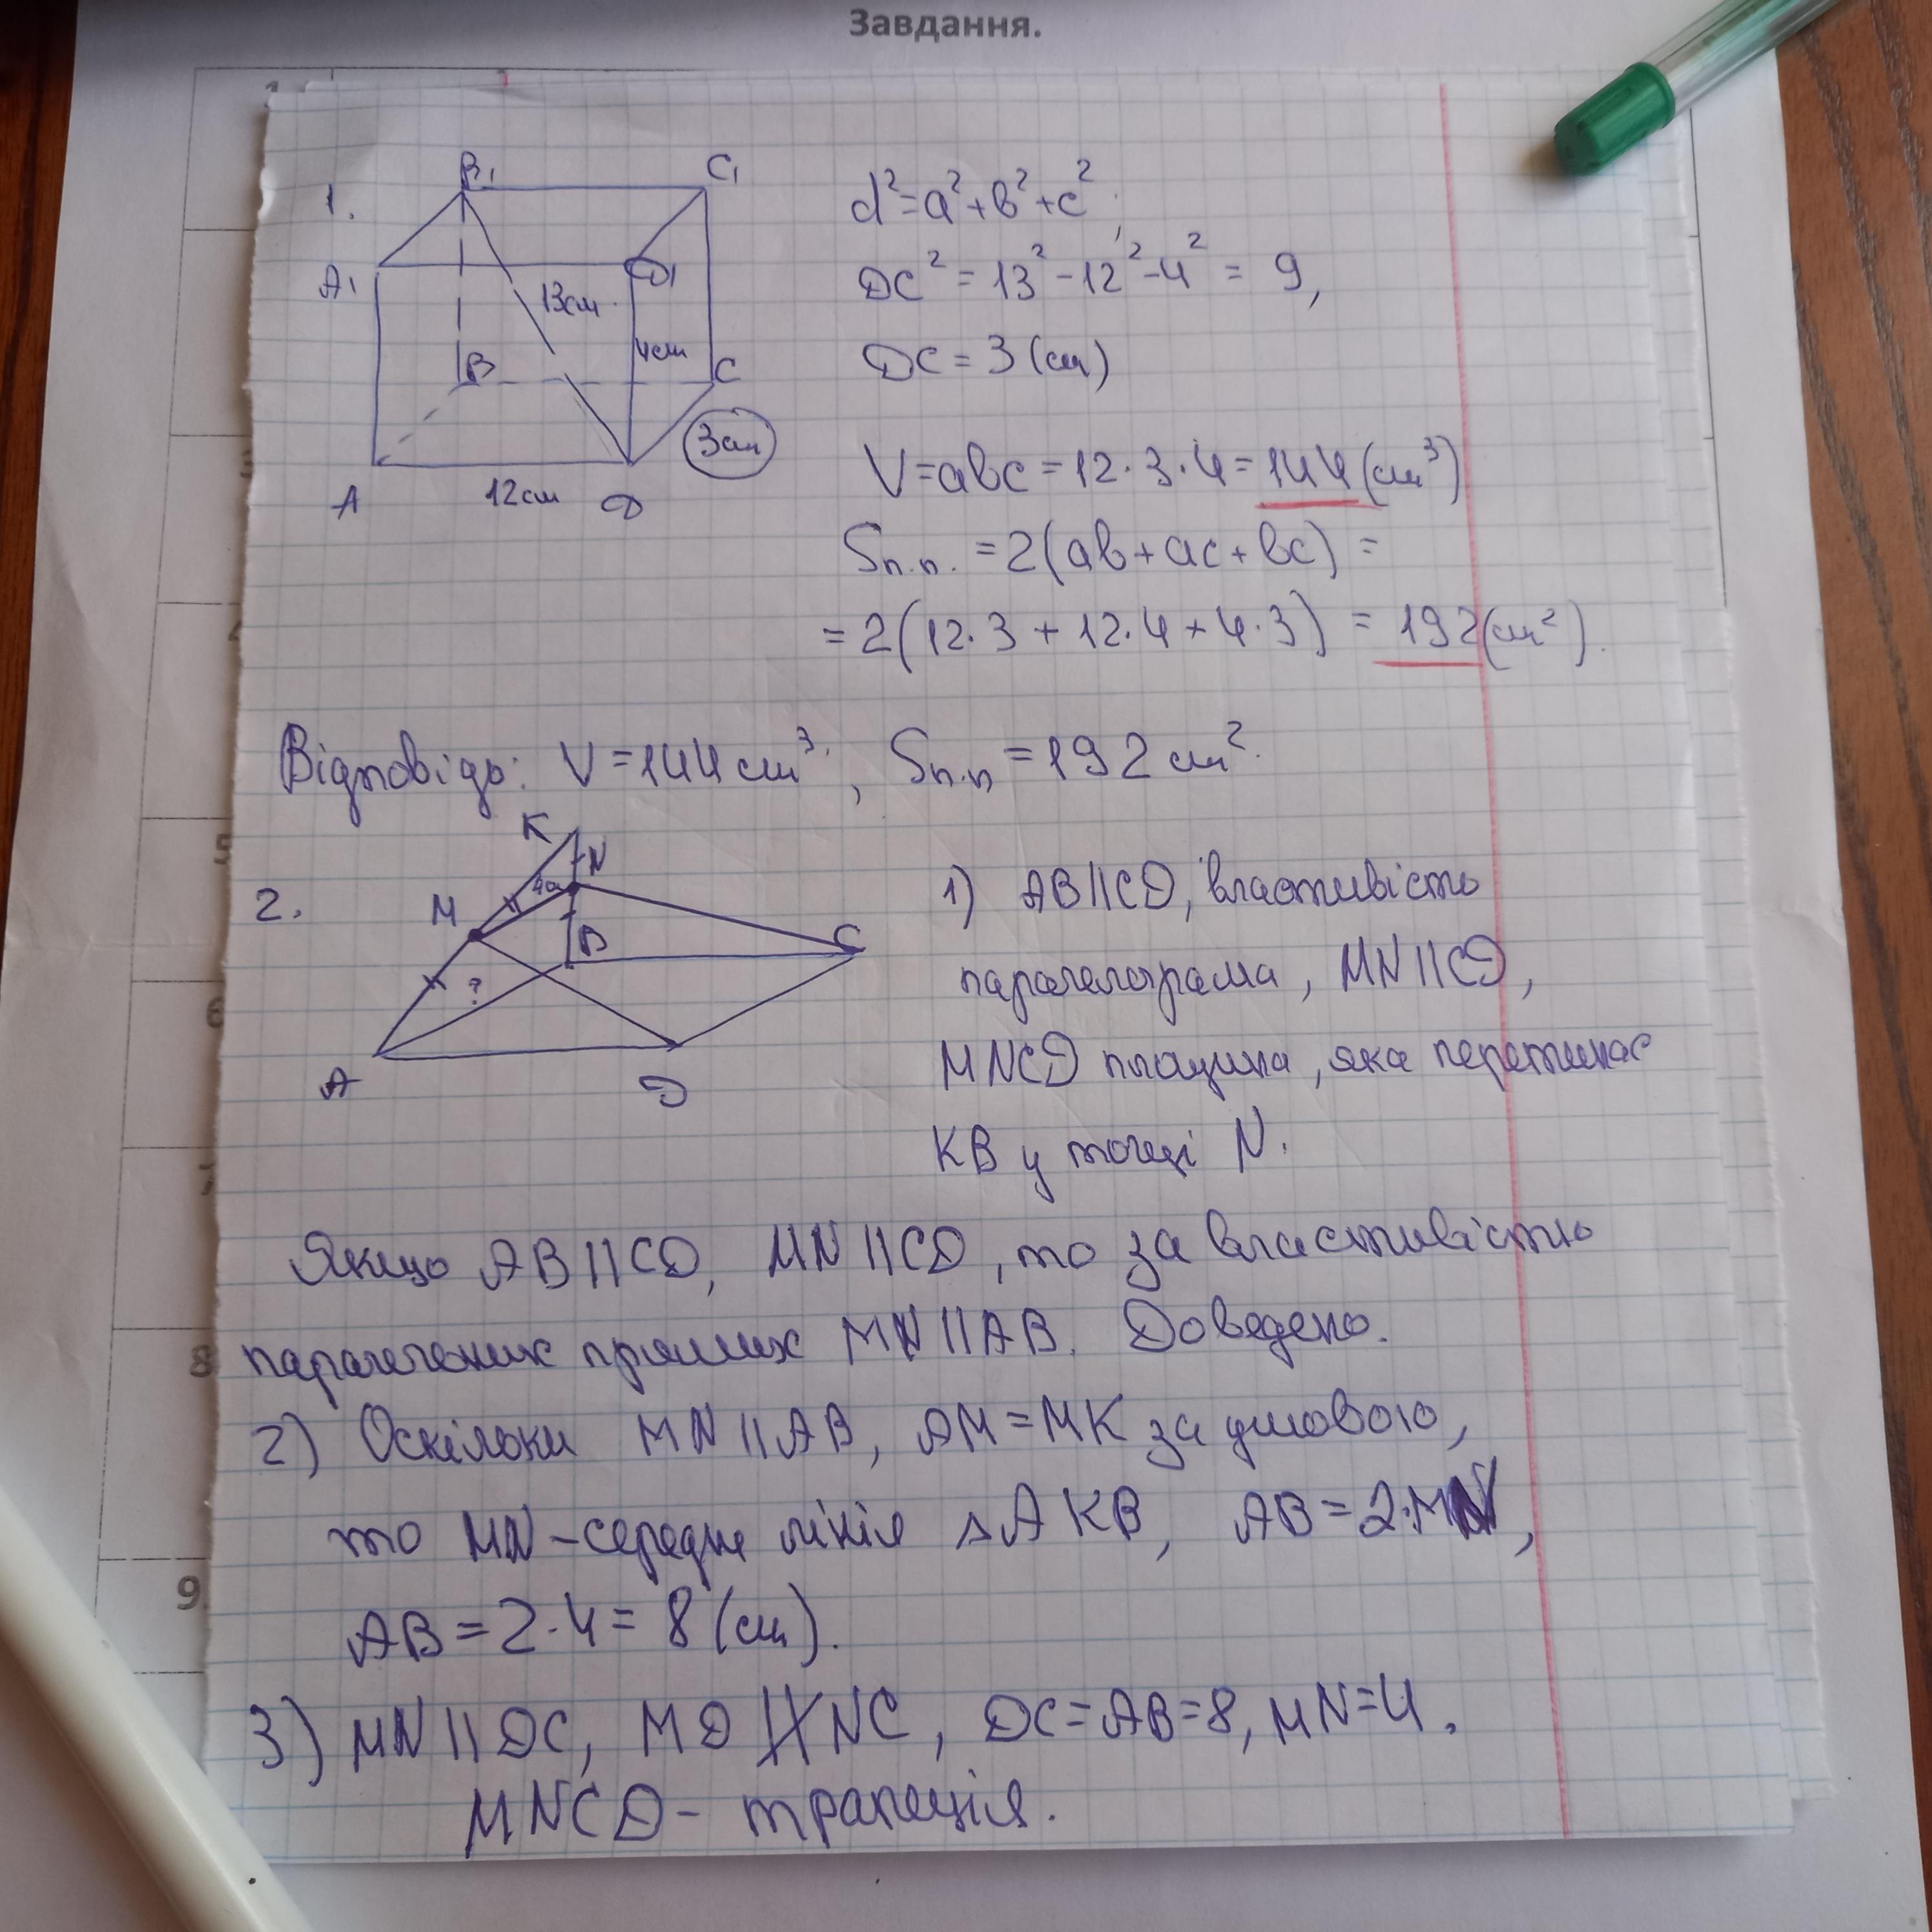 Завдання.
1.
B₁ C₁
A₁ D₁
13см
4см
B C
3см
A 12см D
d²=a²+b²+c²,
DC²=13²-12²-4²=9,
DC=3(см)
V=abc=12·3·4=144(см³)
Sп.п.=2(ab+ac+bc)=
=2(12·3+12·4+4·3)=192(см²).
Відповідь: V=144см³, Sп.п=192см².
2.
K
N
M
B
C
?
A
D
1) AB||CD, властивість
паралелограма, MN||CD,
MNCD площина, яка перетинає
KB у точці N.
Якщо AB||CD, MN||CD, то за властивістю
паралельних прямих MN||AB. Доведено.
2) Оскільки MN||AB, AM=MK за умовою,
то MN-середня лінія △AKB, AB=2·MN,
AB=2·4=8(см).
3) MN||DC, MD∦NC, DC=AB=8, MN=4.
MNCD- трапеція.
1
3
4
5
6
7
8
9